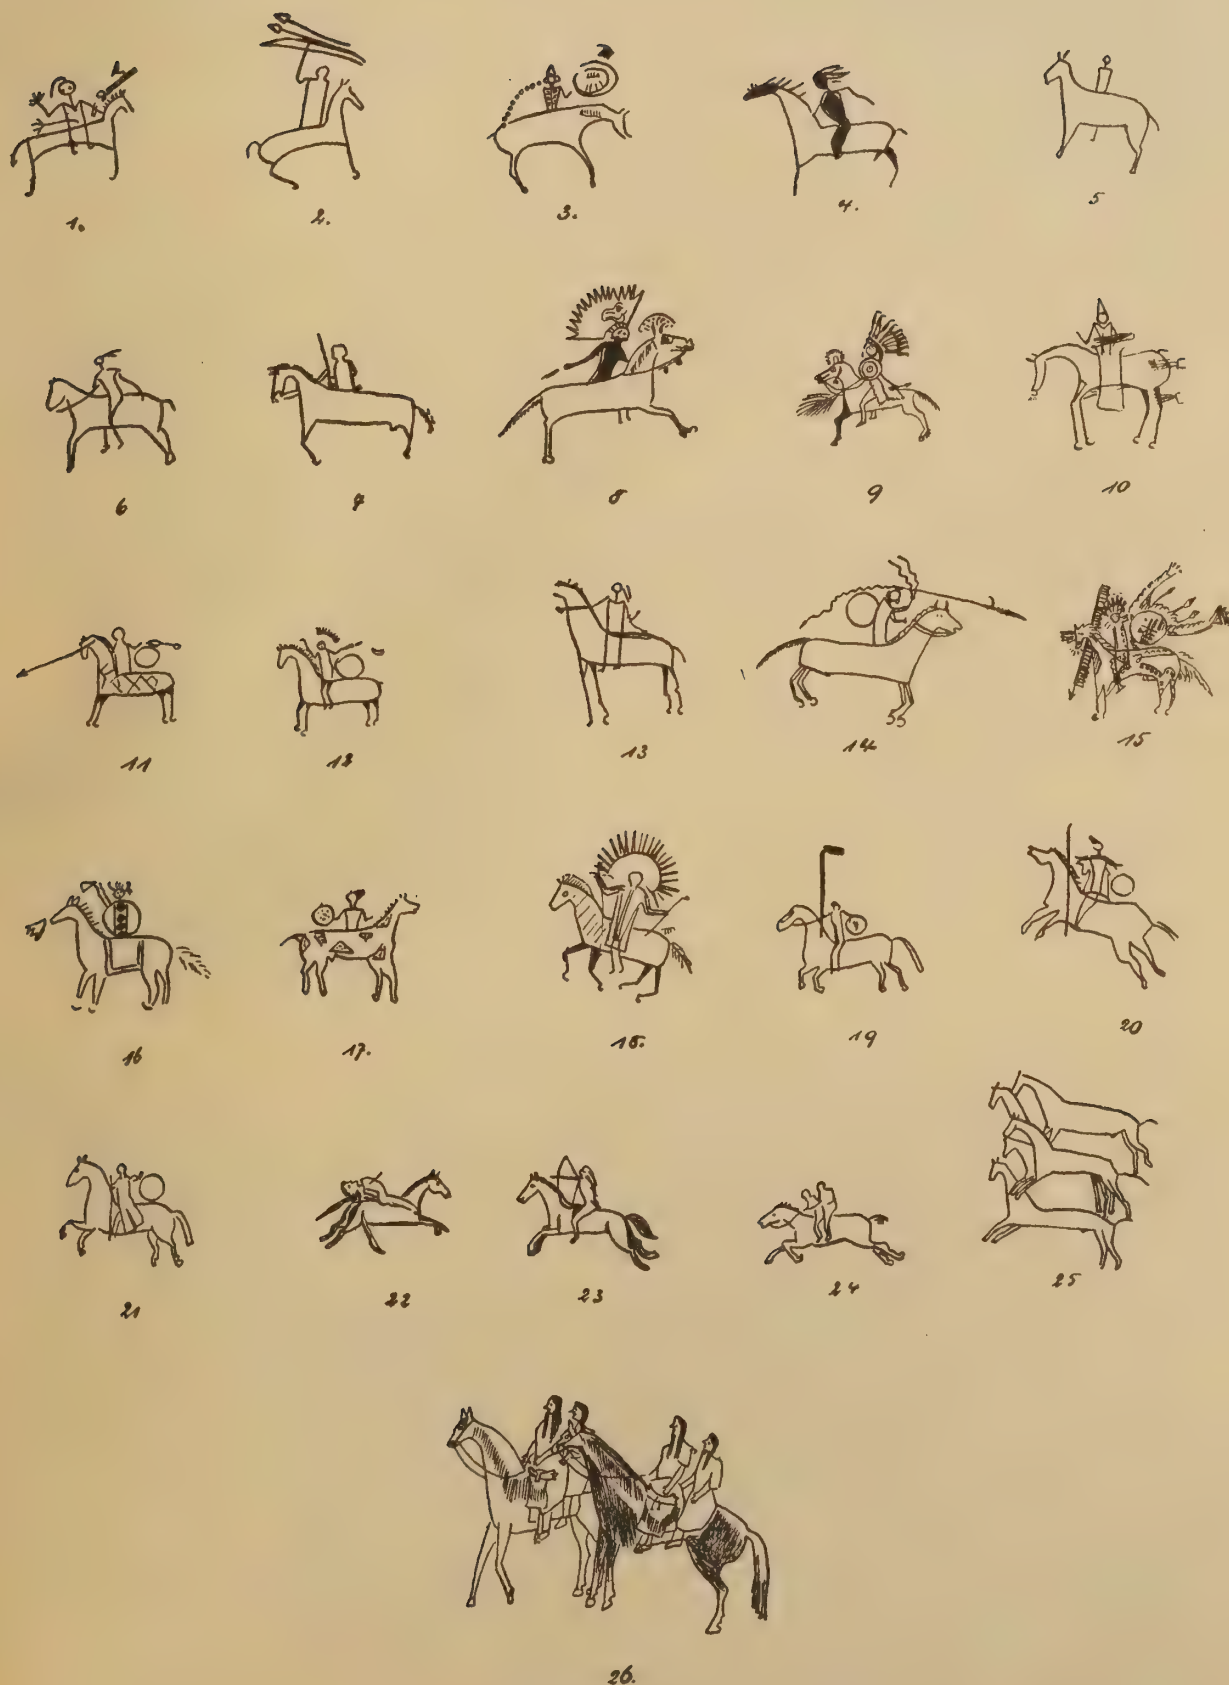 1.
2.
3.
4.
5
6
7
8
9
10
11
12
13
14
15
16
17.
18.
19
20
21
22
23
24
25
26.